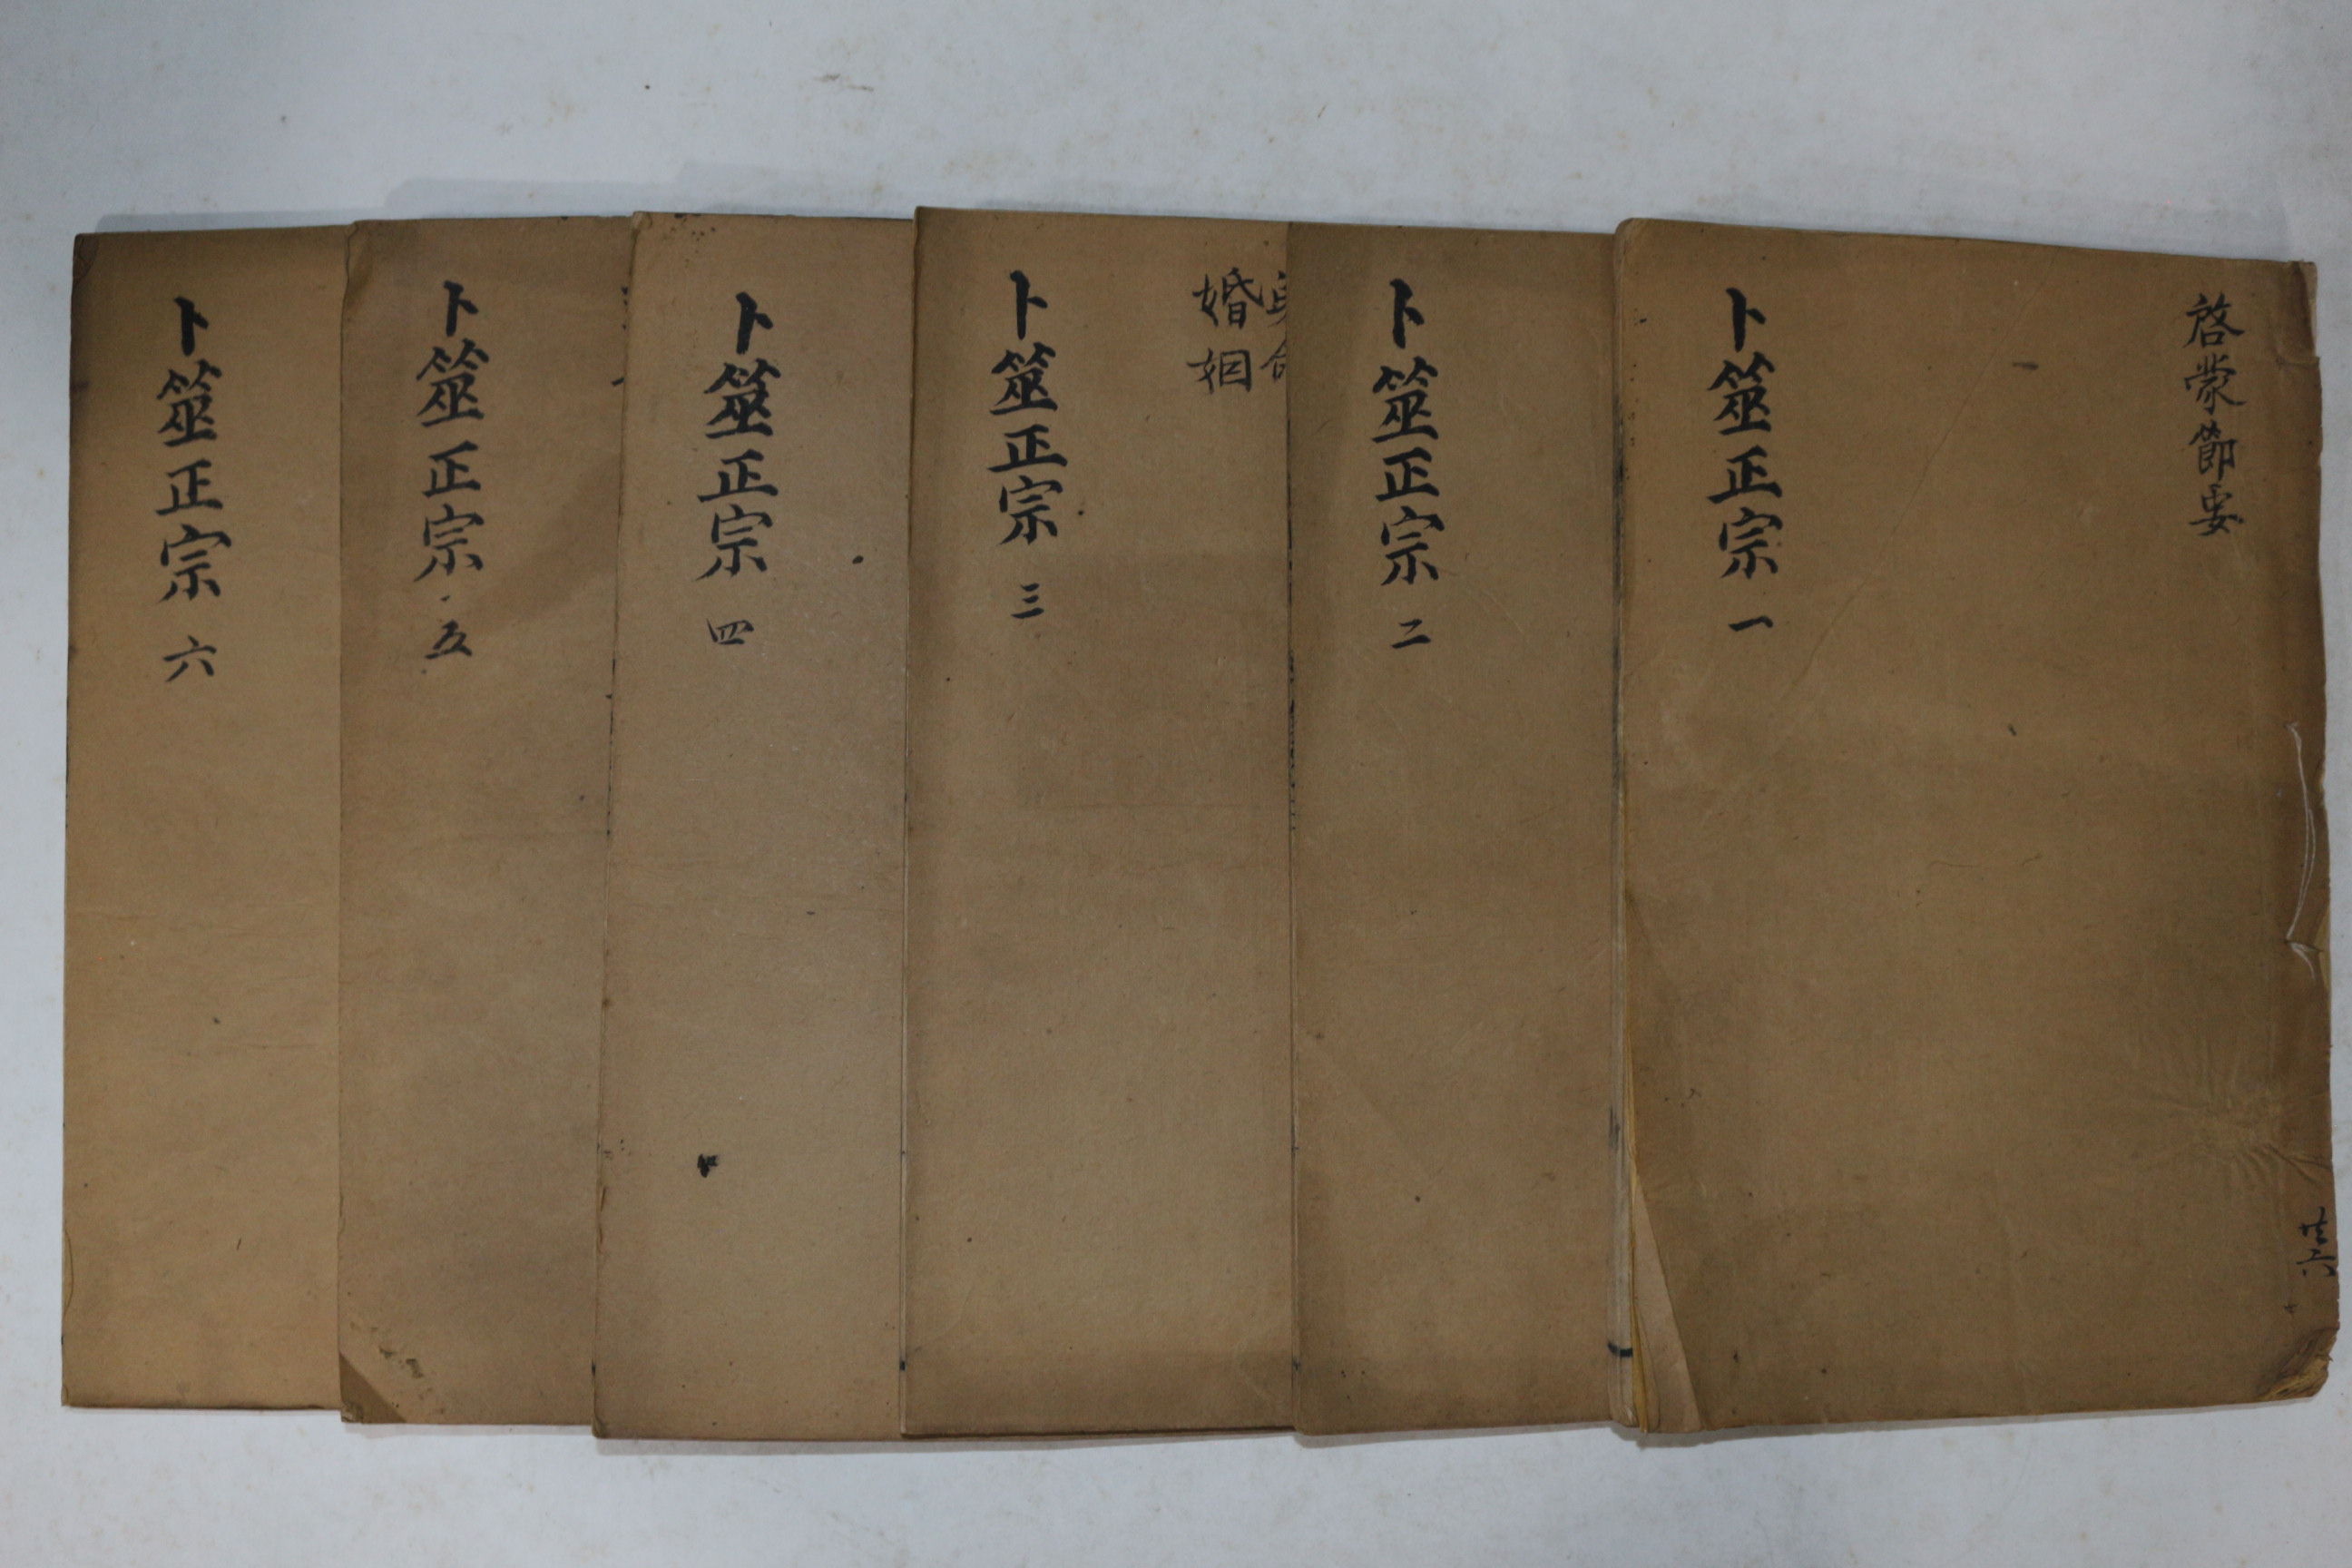 啓蒙節要
卜筮正宗 一
卜筮正宗 二
婚姻
卜筮正宗 三
卜筮正宗 四
卜筮正宗 五
卜筮正宗 六